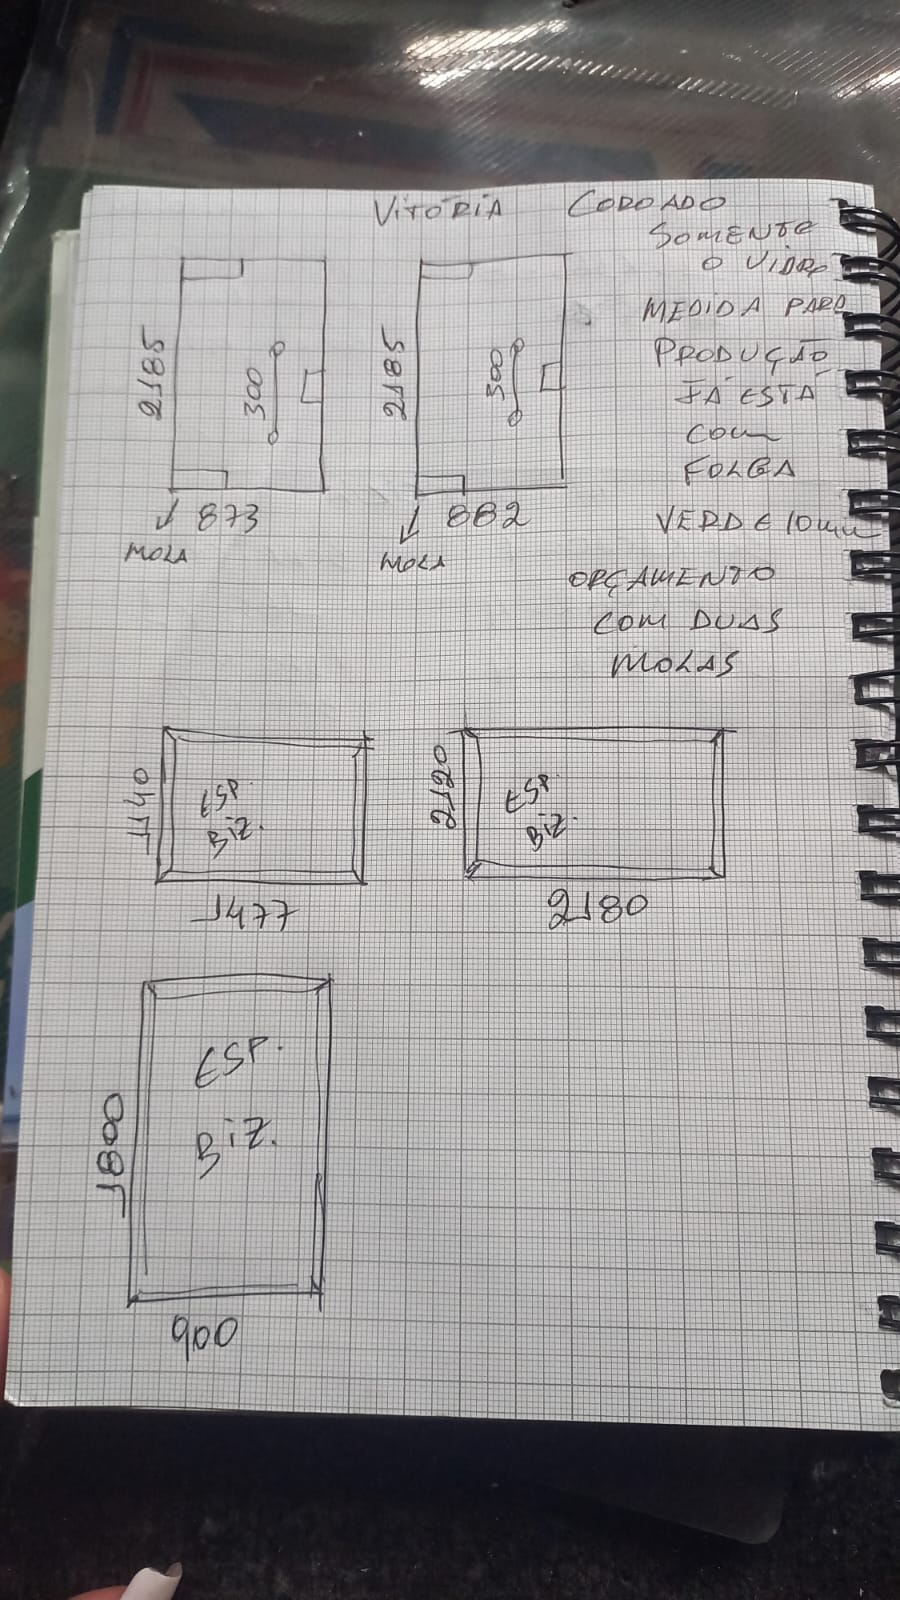 VITORIA COROADO
SOMENTE
O VIDRO
MEDIDA PARA
PRODUÇÃO
JÁ ESTÁ
COM
FOLGA
VERDE 10mm
ORÇAMENTO
COM DUAS
MOLAS
2185
300
873
MOLA
2185
300
882
MOLA
1140
ESP.
BIZ.
1477
2120
ESP.
BIZ.
2180
1800
ESP.
BIZ.
900